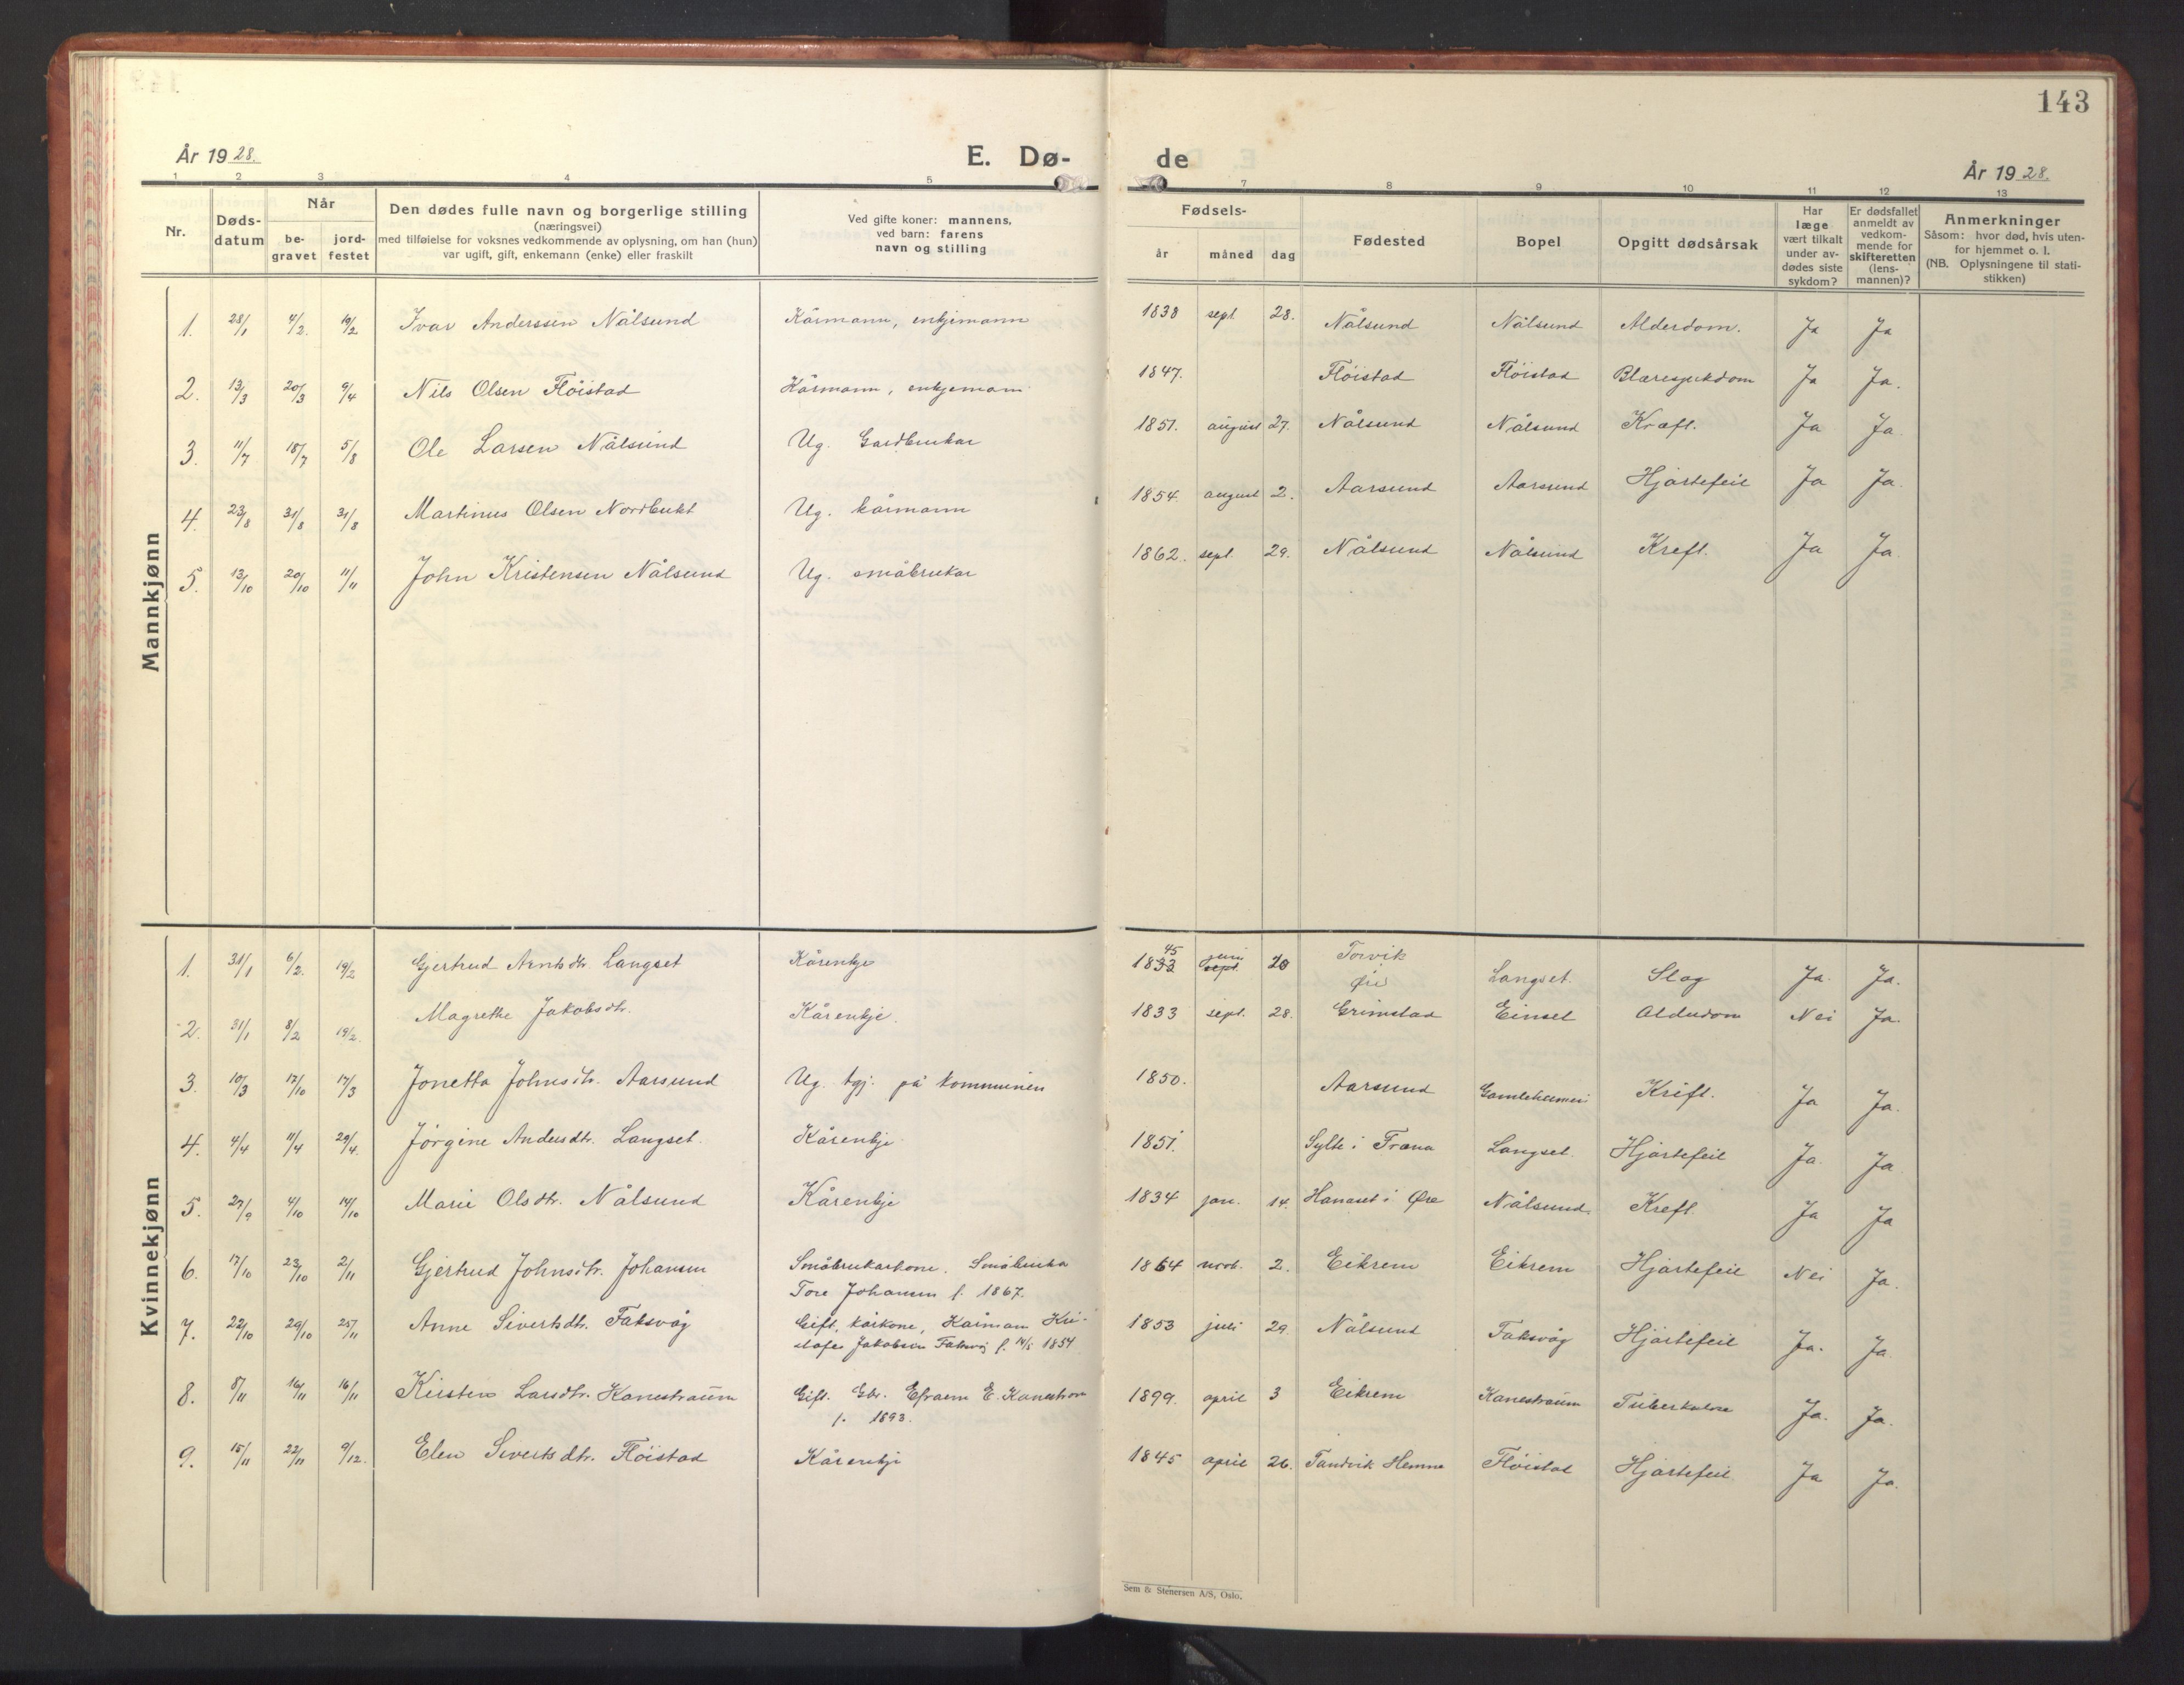 143
År 1928.
E. Dø-
de
År 1928.
1 2 3 4 5 7 8 9 10 11 12 13
Nr.
Døds-
datum
Når
be-
gravet
jord-
festet
Den dødes fulle navn og borgerlige stilling
(næringsvei)
med tilføielse for voksnes vedkommende av oplysning, om han (hun)
var ugift, gift, enkemann (enke) eller fraskilt
Ved gifte koner: mannens,
ved barn: farens
navn og stilling
Fødsels-
år måned dag
Fødested
Bopel
Opgitt dødsårsak
Har
læge
vært tilkalt
under av-
dødes siste
sykdom?
Er dødsfallet
anmeldt av
vedkom-
mende for
skifteretten
(lens-
mannen)?
Anmerkninger
Såsom: hvor død, hvis uten-
for hjemmet o. l.
(NB. Oplysningene til stati-
stikken)
Mannkjønn
1. 28/1 4/2. 19/2 Ivar Anderssen Nålsund Kårmann, enkjemann 1838 sept. 28. Nålsund Nålsund Alderdom. Ja Ja
2. 13/3 20/3 9/4 Nils Olsen Flöistad Kårmann, enkjemann 1847. Flöistad Flöistad Blæresjukdom Ja Ja.
3. 11/7 18/7 5/8 Ole Larsen Nålsund Ug. Gardbrukar 1851. august 27. Nålsund Nålsund Kræft. Ja Ja
4. 23/8 31/8 31/8 Martinus Olsen Nordbukt Ug. kårmann 1854. august 2. Aarsund Aarsund Hjartefeil Ja Ja.
5. 13/10 20/10 11/11 John Kristensen Nålsund Ug. småbrukar 1862. sept. 29. Nålsund Nålsund Kreft. Ja Ja
Kvinnekjønn
1. 31/1 6/2. 19/2 Gjertrud Arntsdtr. Langset Kårenkje 1833 45 sept. juni 20 Torvik
Øre Langset. Slag Ja. Ja.
2. 31/1 8/2 19/2. Magrethe Jakobsdtr. Kårenkje. 1833 sept. 28. Grimstad Einset Alderdom Nei Ja.
3. 10/3 17/10 17/3 Jonetta Johnsdtr. Aarsund Ug. tgj. på kommunen 1850. Aarsund Kreft. Ja Ja.
4. 4/4 11/4 29/4. Jörgine Andersdtr. Langset. Kårenkje 1851. Sylte i Fræna Langset. Hjartefeil Ja. Ja
5. 27/9 4/10 14/10 Marie Olsdtr. Nålsund Kårenkje 1834 jan. 14. Hanaset i Øre Nålsund. Kreft. Ja Ja
6. 17/10 23/10 2/11 Gjertrud Johnsdtr. Johansen Småbrukarkone. Småbrukar
Tore Johansen f. 1867. 1864 novb. 2. Eikrem Eikrem Hjartefeil Nei Ja.
7. 22/10 29/10 25/11 Anne Sivertsdtr. Taksvåg Gift, kårkone, Kårmann Kri-
stofer Jakobsen Taksvåg f. 14/5 1854 1853 juli 29. Nålsund Taksvåg Hjartefeil Ja. Ja
8. 8/11 16/11 16/11 Kirsten Larsdtr. Kanestraum Gift. Gbr. Efraem E. Kanestrom
f. 1893. 1899. april 3 Eikrem Kanestraum Tuberkulose Ja. Ja.
9. 15/11 22/11 9/12. Elen Sivertsdtr. Flöistad Kårenkje 1845 april 26. Tandvik Hemne Flöistad Hjartefeil Ja Ja.
Sem & Stenersen A/S, Oslo.